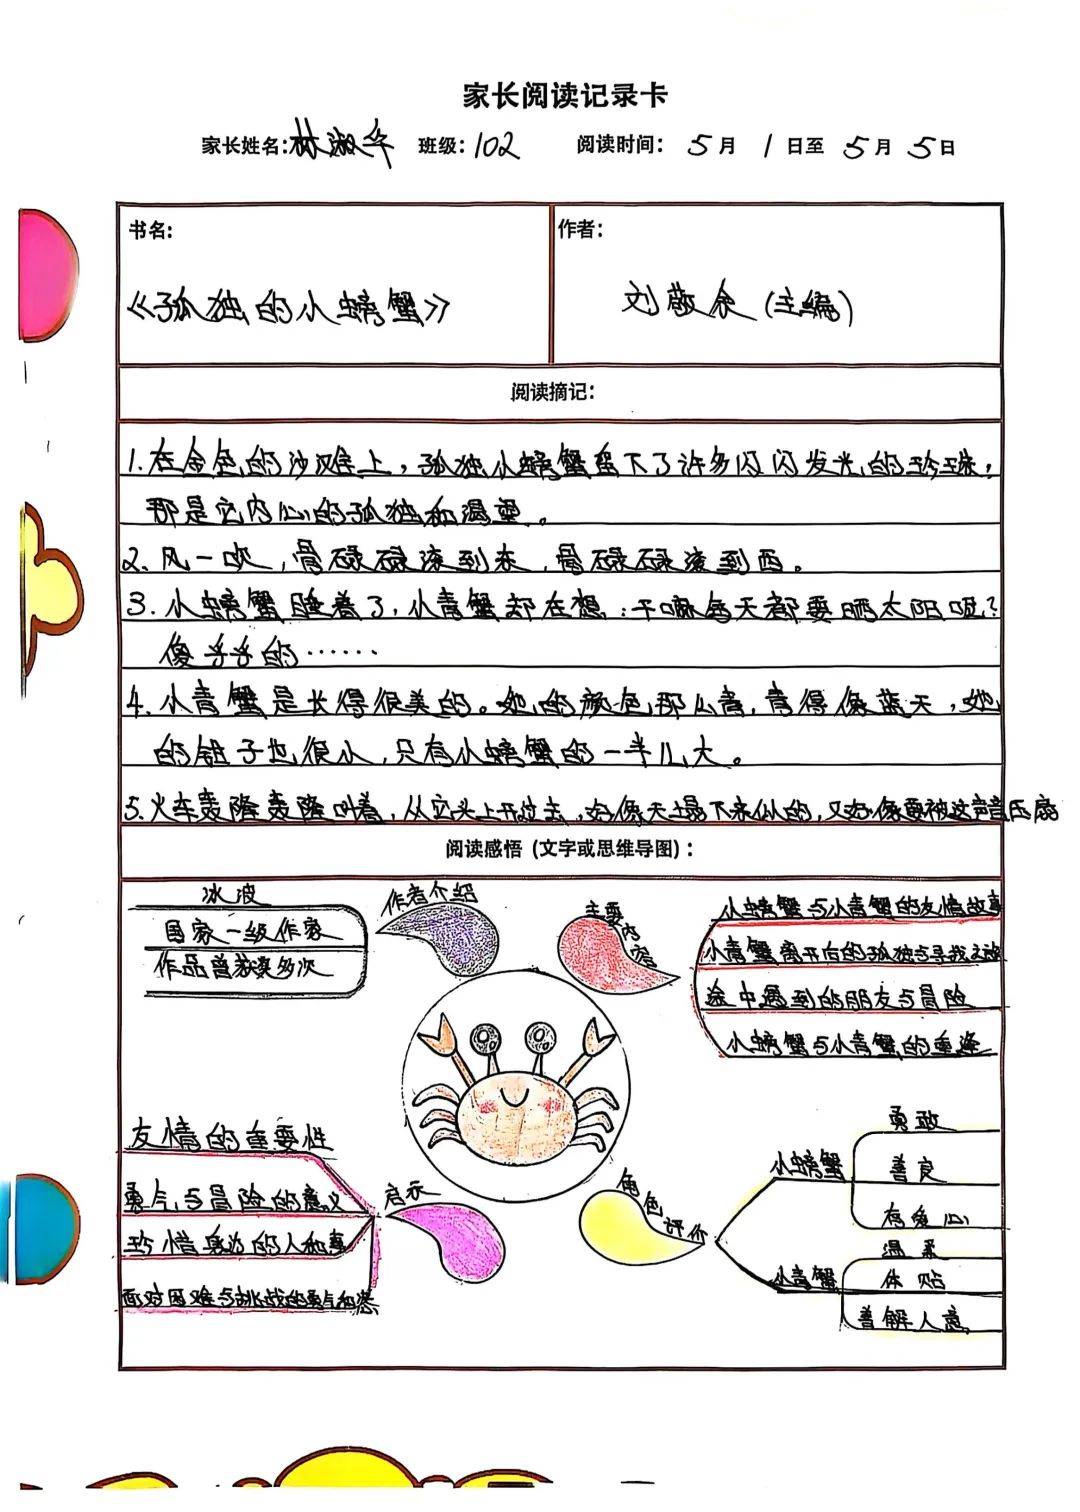 家长阅读记录卡
家长姓名:林淑华 班级:102 阅读时间: 5月1日至5月5日
书名:
《孤独的小螃蟹》
作者:
刘敬余(主编)
阅读摘记:
1.在金色的沙滩上,孤独小螃蟹留下了许多闪闪发光的珍珠,
那是它内心的孤独和渴望。
2.风一吹,骨碌碌滚到东,骨碌碌滚到西。
3.小螃蟹睡着了,小青蟹却在想:干嘛每天都要晒太阳呢?
傻乎乎的……
4.小青蟹是长得很美的。她的颜色那么青,青得像蓝天,她
的钳子也很小,只有小螃蟹的一半儿大。
5.火车轰隆轰隆叫着,从它头上开过去,好像天塌下来似的,又好像要被这声音压扁
阅读感悟(文字或思维导图):
作者介绍
冰波
国家一级作家
作品曾获奖多次
主要内容
小螃蟹与小青蟹的友情故事
小青蟹离开后的孤独与寻找之旅
途中遇到的朋友与冒险
小螃蟹与小青蟹的重逢
启示
友情的重要性
勇气与冒险的意义
珍惜身边的人和事
面对困难与挑战的勇气和
角色评价
小螃蟹
勇敢
善良
有爱心
小青蟹
温柔
体贴
善解人意